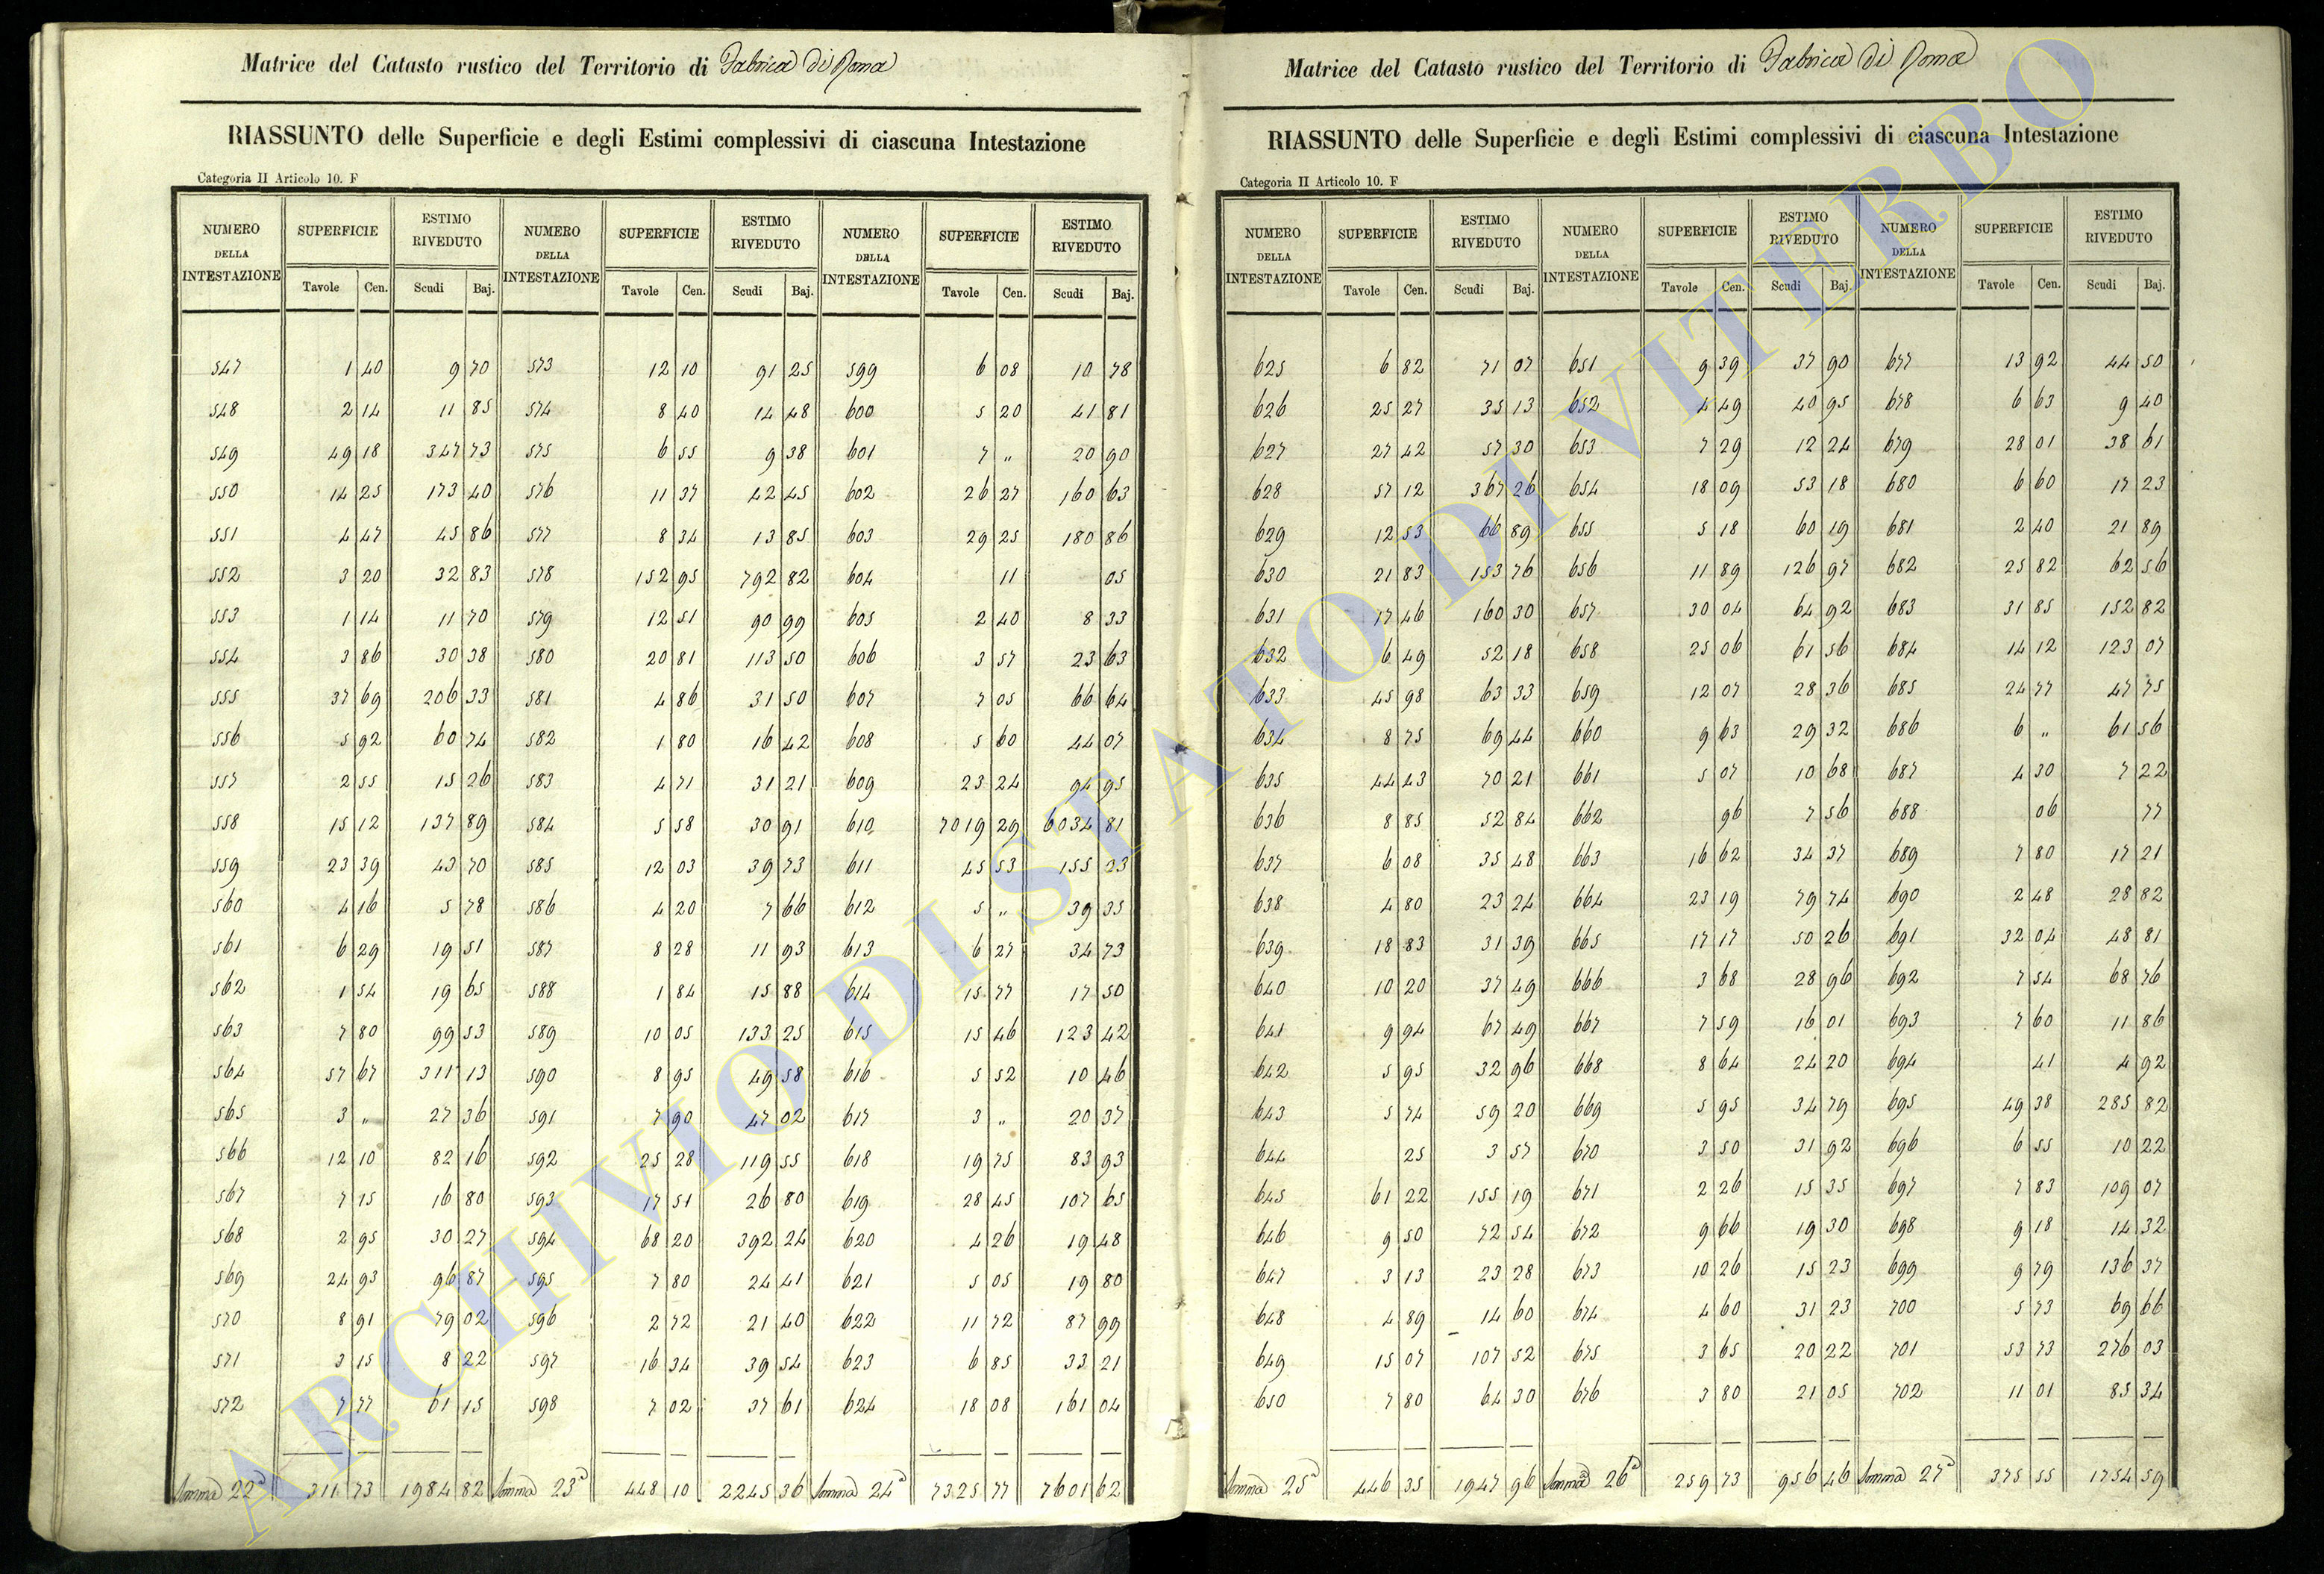 Matrice del Catasto rustico del Territorio di Fabrica di Roma
RIASSUNTO delle Superficie e degli Estimi complessivi di ciascuna Intestazione
Categoria II Articolo 10. F
NUMERO DELLA INTESTAZIONE SUPERFICIE ESTIMO RIVEDUTO NUMERO DELLA INTESTAZIONE SUPERFICIE ESTIMO RIVEDUTO NUMERO DELLA INTESTAZIONE SUPERFICIE ESTIMO RIVEDUTO
Tavole Cen. Scudi Baj. Tavole Cen. Scudi Baj. Tavole Cen. Scudi Baj.
547 1 40 9 70 573 12 10 91 25 599 6 08 10 78
548 2 14 11 85 574 8 40 14 48 600 5 20 41 81
549 49 18 347 73 575 6 55 9 38 601 7 „ 20 90
550 14 25 173 40 576 11 37 42 45 602 26 27 160 63
551 4 47 45 86 577 8 34 13 85 603 29 25 180 86
552 3 20 32 83 578 152 95 792 82 604 11 05
553 1 14 11 70 579 12 51 90 99 605 2 40 8 33
554 3 86 30 38 580 20 81 113 50 606 3 57 23 63
555 37 69 206 33 581 4 86 31 50 607 7 05 66 64
556 5 92 60 74 582 1 80 16 42 608 5 60 44 07
557 2 55 15 26 583 4 71 31 21 609 23 24 94 95
558 15 12 137 89 584 5 58 30 91 610 7019 29 6034 81
559 23 39 43 70 585 12 03 39 73 611 45 53 155 23
560 4 16 5 78 586 4 20 7 66 612 5 „ 39 35
561 6 29 19 51 587 8 28 11 93 613 6 27 34 73
562 1 54 19 65 588 1 84 15 88 614 15 77 17 50
563 7 80 99 53 589 10 05 133 25 615 15 46 123 42
564 57 67 311 13 590 8 95 49 58 616 5 52 10 46
565 3 „ 27 36 591 7 90 47 02 617 3 „ 20 37
566 12 10 82 16 592 25 28 119 55 618 19 75 83 93
567 7 15 16 80 593 17 51 26 80 619 28 45 107 65
568 2 95 30 27 594 68 20 392 24 620 4 26 19 48
569 24 93 96 87 595 7 80 24 41 621 5 05 19 80
570 8 91 79 02 596 2 72 21 40 622 11 72 87 99
571 3 15 8 22 597 16 34 39 54 623 6 85 33 21
572 7 77 61 15 598 7 02 37 61 624 18 08 161 04
Somma 22ª 311 73 1984 82 Somma 23ª 448 10 2245 36 Somma 24ª 7325 77 7601 62
Matrice del Catasto rustico del Territorio di Fabrica di Roma
RIASSUNTO delle Superficie e degli Estimi complessivi di ciascuna Intestazione
Categoria II Articolo 10. F
NUMERO DELLA INTESTAZIONE SUPERFICIE ESTIMO RIVEDUTO NUMERO DELLA INTESTAZIONE SUPERFICIE ESTIMO RIVEDUTO NUMERO DELLA INTESTAZIONE SUPERFICIE ESTIMO RIVEDUTO
Tavole Cen. Scudi Baj. Tavole Cen. Scudi Baj. Tavole Cen. Scudi Baj.
625 6 82 71 07 651 9 39 37 90 677 13 92 44 50
626 25 27 35 13 652 4 49 40 95 678 6 63 9 40
627 27 42 57 30 653 7 29 12 24 679 28 01 38 61
628 57 12 367 26 654 18 09 53 18 680 6 60 17 23
629 12 53 66 89 655 5 18 60 19 681 2 40 21 89
630 21 83 153 76 656 11 89 126 97 682 25 82 62 56
631 17 46 160 30 657 30 04 64 92 683 31 85 152 82
632 6 49 52 18 658 25 06 61 56 684 14 12 123 07
633 45 98 63 33 659 12 07 28 36 685 24 77 47 75
634 8 75 69 44 660 9 63 29 32 686 6 „ 61 56
635 44 43 70 21 661 5 07 10 68 687 4 30 7 22
636 8 85 52 84 662 96 7 56 688 06 77
637 6 08 35 48 663 16 62 34 37 689 7 80 17 21
638 4 80 23 24 664 23 19 79 74 690 2 48 28 82
639 18 83 31 39 665 17 17 50 26 691 32 04 48 81
640 10 20 37 49 666 3 68 28 96 692 7 54 68 76
641 9 94 67 49 667 7 59 16 01 693 7 60 11 86
642 5 95 32 96 668 8 64 24 20 694 41 4 92
643 5 74 59 20 669 5 95 34 79 695 49 38 285 82
644 25 3 57 670 3 50 31 92 696 6 55 10 22
645 61 22 155 19 671 2 26 15 35 697 7 83 109 07
646 9 50 72 54 672 9 66 19 30 698 9 18 14 32
647 3 13 23 28 673 10 26 15 23 699 9 79 136 37
648 4 89 14 60 674 4 60 31 23 700 5 73 69 66
649 15 07 107 52 675 3 65 20 22 701 53 73 276 03
650 7 80 64 30 676 3 80 21 05 702 11 01 85 34
Somma 25ª 446 35 1947 96 Somma 26ª 259 73 956 46 Somma 27ª 375 55 1754 59
ARCHIVIO DI STATO DI VITERBO